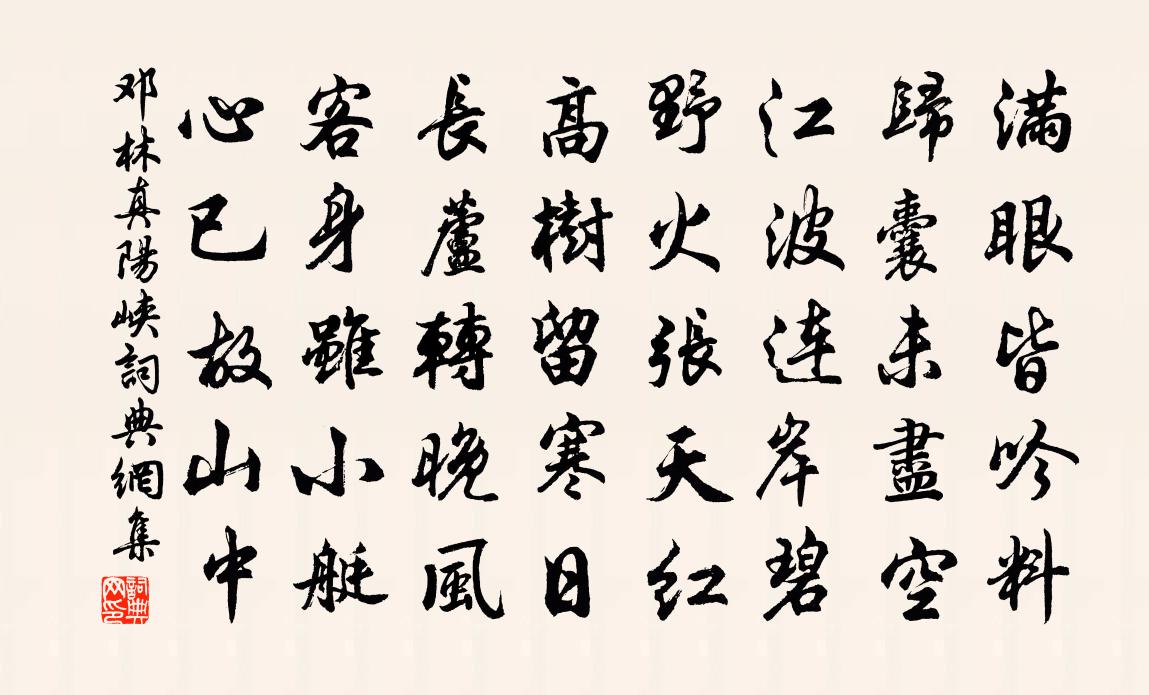 满眼皆吟料
歸囊未盡空
江波连岸碧
野火張天红
高樹留寒日
長蘆轉晚風
客身雖小艇
心已故山中
邓林真陽峡詞典網集
詞典
网印